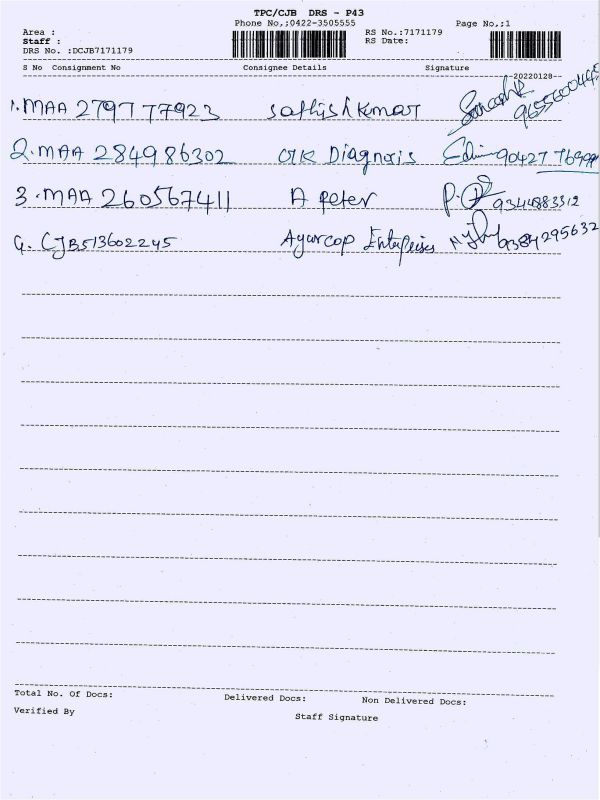 TPC/CJB DRS - P43
Phone No,:0422-3505555 Page No,:1
Area :
Staff :
DRS No. :DCJB7171179
RS No.:7171179
RS Date:
S No Consignment No Consignee Details Signature
20220128--
1. MAA 279777923 Sathish kumar 9655600445
2. MAA 284986302 Diagnosis 90427
3. MAA 260567411 A Peter 9344883312
4. CJB513602245 Enterprises 9384295632
Total No. Of Docs: Delivered Docs: Non Delivered Docs:
Verified By Staff Signature